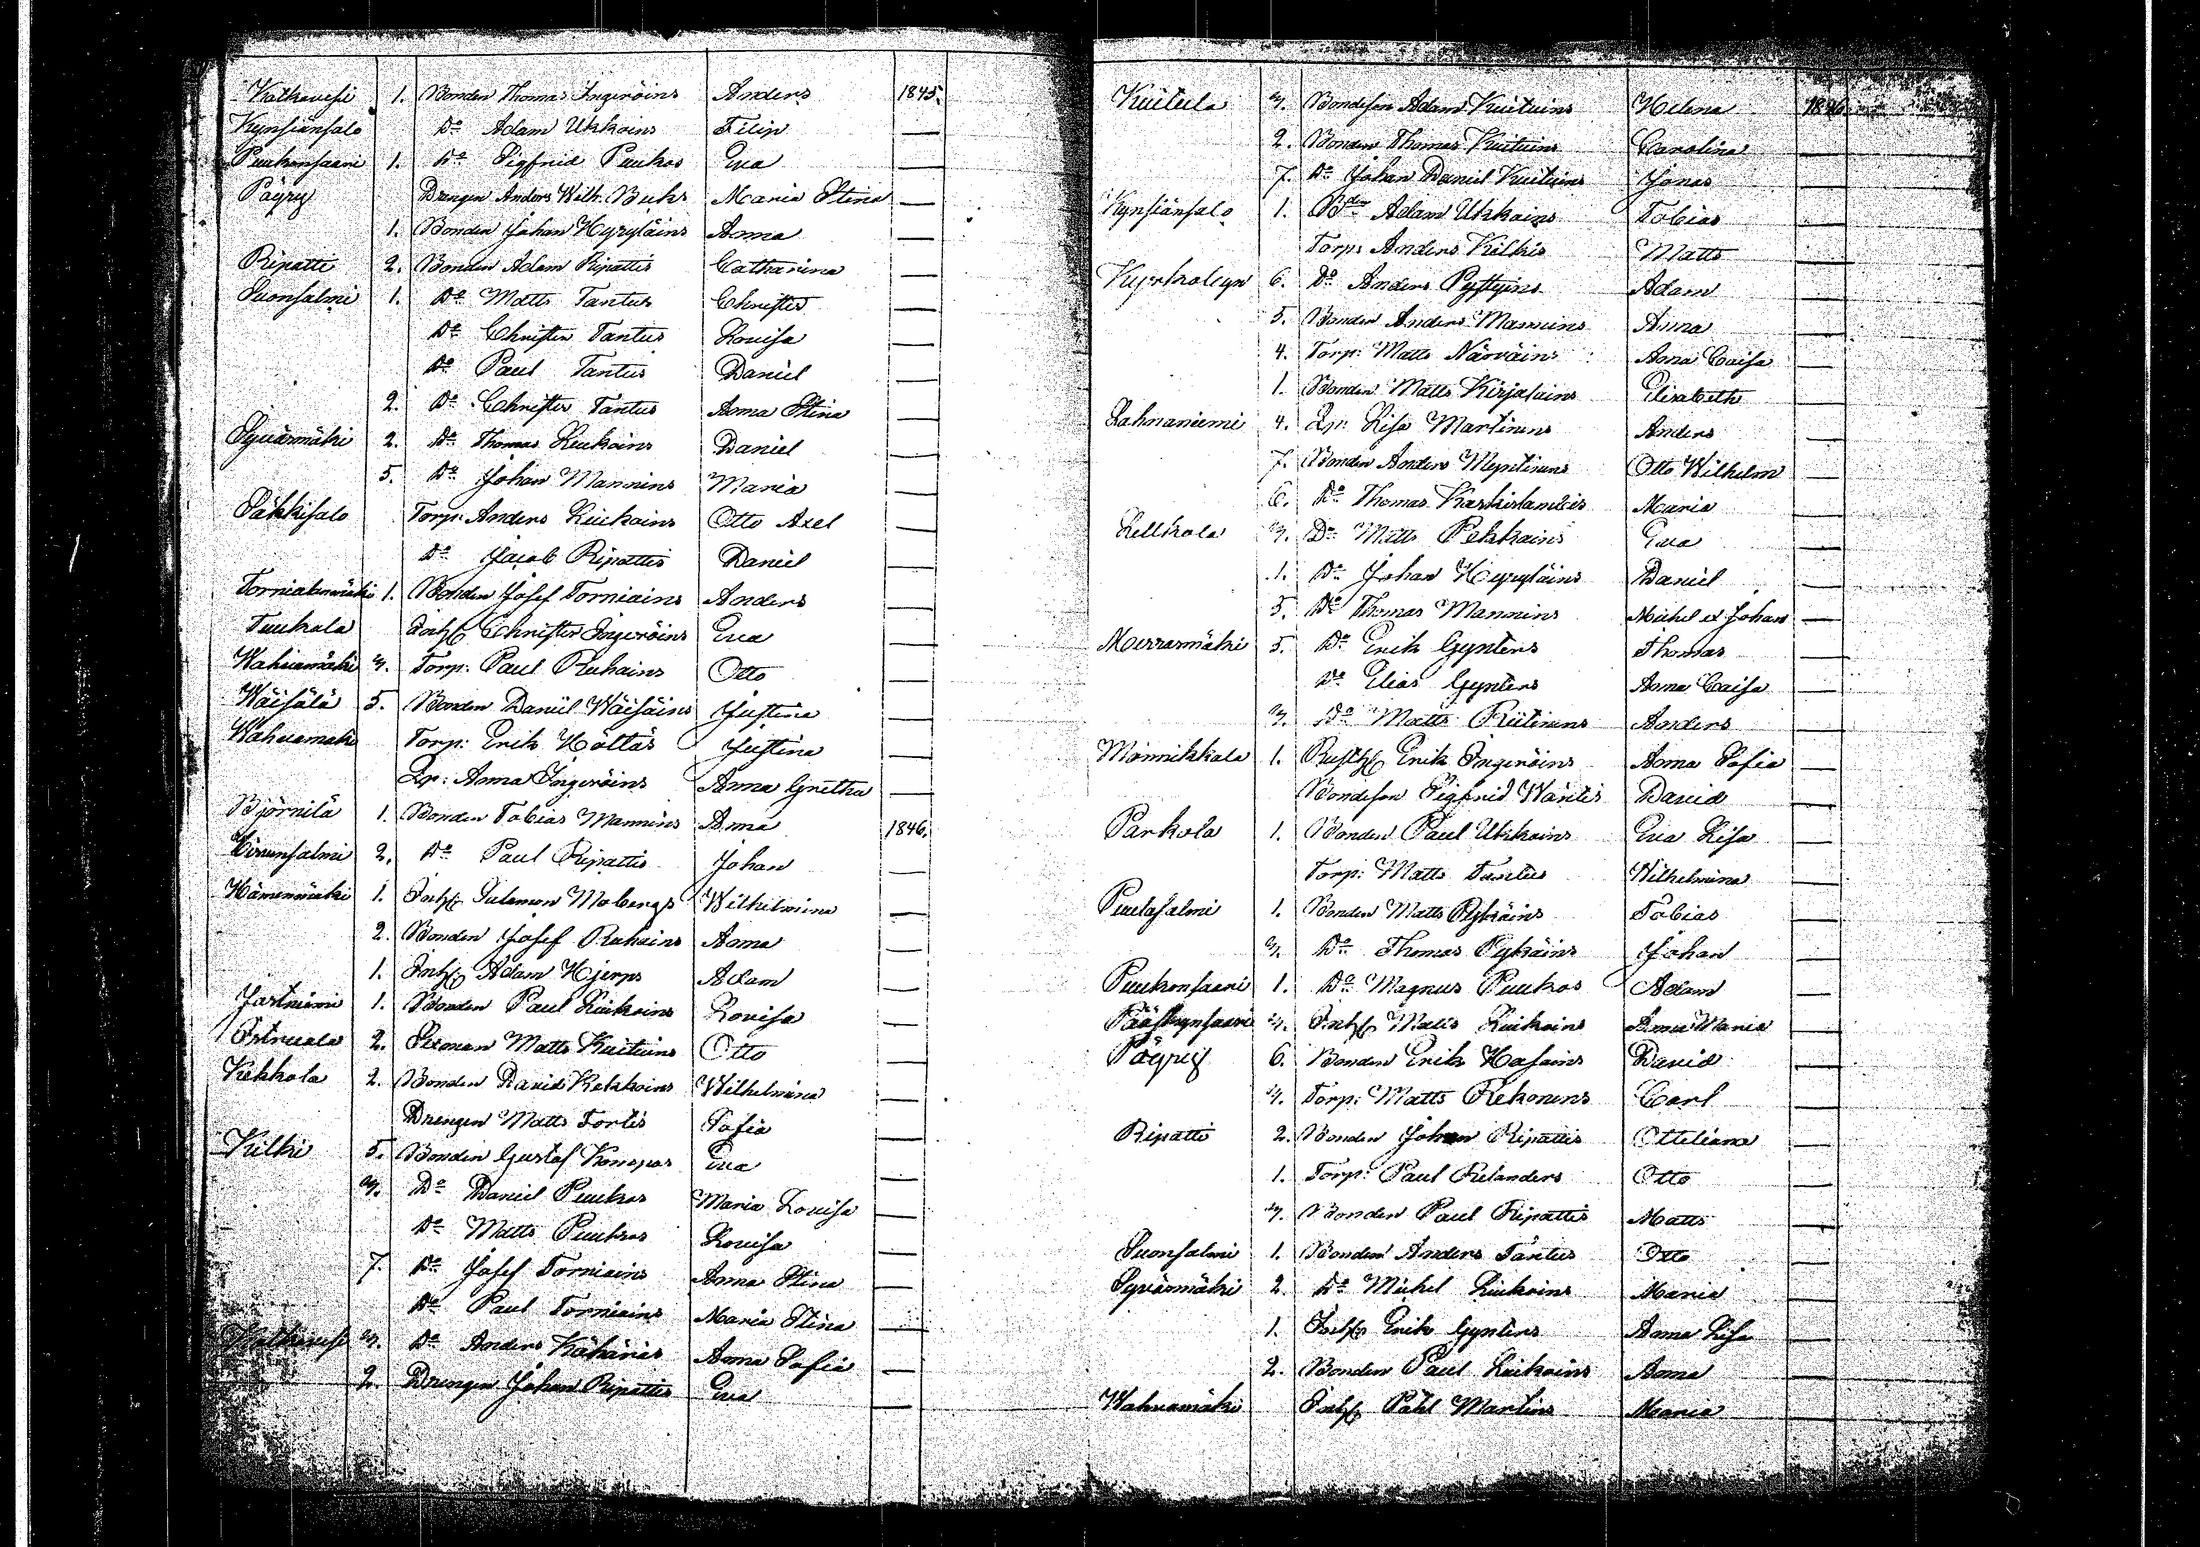 Katkavesi 1. Bonden Thomas Ingeröins Anders 1845.
Kynsiänsalo Dº Adam Ukkoins Filip —
Puukonsaari 1. Dº Sigfrid Puukos Eva —
Päyry Drengen Anders Wilh. Buks Maria Stina —
1. Bonden Johan Hyryläins Anna —
Ripatti 2. Bonden Adam Ripattis Catharina —
Suonsalmi 1. Dº Matts Tantus Christer —
Dº Christer Tantus Lovisa —
Dº Paul Tantus Daniel —
2. Dº Christer Tantus Anna Stina —
Syvärmäki 2. Dº Thomas Liukoins Daniel —
5. Dº Johan Mannins Maria —
Säkkisalo Torp: Anders Liukoins Otto Axel —
Dº Jacob Ripattis Daniel —
Torniaismäki 1. Bonden Josef Torniains Anders —
Tuukala Inhs Christer Ingeröins Eva —
Wahvamäki 4. Torp: Paul Ruhains Otto —
Wäisälä 5. Bonden Daniel Wäisäins Justina —
Wahvamäki Torp: Erik Höltäs Justina —
Qp: Anna Ingeröins Anna Gretha —
Björnilä 1. Bonden Tobias Mannins Anna 1846.
Hirvensalmi 2. Dº Paul Ripattis Johan —
Hämenmäki 1. Inhs Salomon Mobergs Wilhelmina —
2. Bonden Josef Ruhains Anna —
1. Inhs Adam Hjerps Adam —
Bonden Paul Liukoins Lovisa —
2. Matts Kuituins Otto —
Kekkola 2. Bonden David Kekkoins Wilhelmina —
Drengen Matts Tortis Sofia —
Kilki 5. Bonden Gustaf Konopas Eva —
4. Dº Daniel Puukos Maria Lovisa —
Dº Matts Puukos Lovisa —
7. Dº Josef Torniains Anna Stina —
Dº Paul Torniains Maria Stina —
Katkavesi 4. Dº Anders Kähäris Anna Sofia —
2. Drengen Johan Ripattis Eva —
Kuitula 4. Bondeson Adam Kuituins Helena 1846
2. Bonden Thomas Kuituins Carolina —
7. Dº Johan Daniel Kuituins Jonas —
Kynsiänsalo 1. Bden Adam Ukkoins Tobias —
Torp: Anders Kilkis Matts —
Kyrkobyn 6. Dº Anders Pyttyins Adam —
5. Bonden Anders Mannins Anna —
4. Torp: Matts Närväins Anna Caisa —
1. Bonden Matts Kirjalains Elisabeth —
Lahnaniemi 4. Qp: Lisa Martinens Anders —
7. Bonden Anders Myntinens Otto Wilhelm —
6. Dº Thomas Maria —
Lellkola 4. Dº Matts Pekkains Eva —
1. Dº Johan Hyryläins Daniel —
5. Dº Thomas Mannins Michel et Johan —
Merrasmäki 5. Dº Erik Gynters Thomas —
Dº Elias Gynters Anna Caisa —
4. Dº Matts Riitinens Anders —
Monnikkala 1. Rusth Erik Ingeröins Anna Sofia —
Bondeson Sigfrid Wäntis David —
Parkola 1. Bonden Paul Ukkoins Eva Lisa —
Torp: Matts Tantus Wilhelmina —
Puulasalmi 1. Bonden Matts Pykäins Tobias —
4. Dº Thomas Pykäins Johan —
Puukonsaari 1. Dº Magnus Puukos Adam —
Pääskynsaari 4. Inhs Matts Liukoins Anna Maria —
Päyry 6. Bonden Erik Hasains David —
4. Torp: Matts Rekonens Carl —
Ripatti 2. Bonden Johan Ripattis Ottiliana —
1. Torp: Paul Relanders Otto —
4. Bonden Paul Ripattis Matts —
Suonsalmi 1. Bonden Anders Tantus Otto —
Syvärmäki 2. Dº Michel Liukoins Maria —
1. Inhs Erik Gynters Anna Lisa —
2. Bonden Paul Liukoins Anna —
Wahvamäki Inhs Påhl Martins Maria —